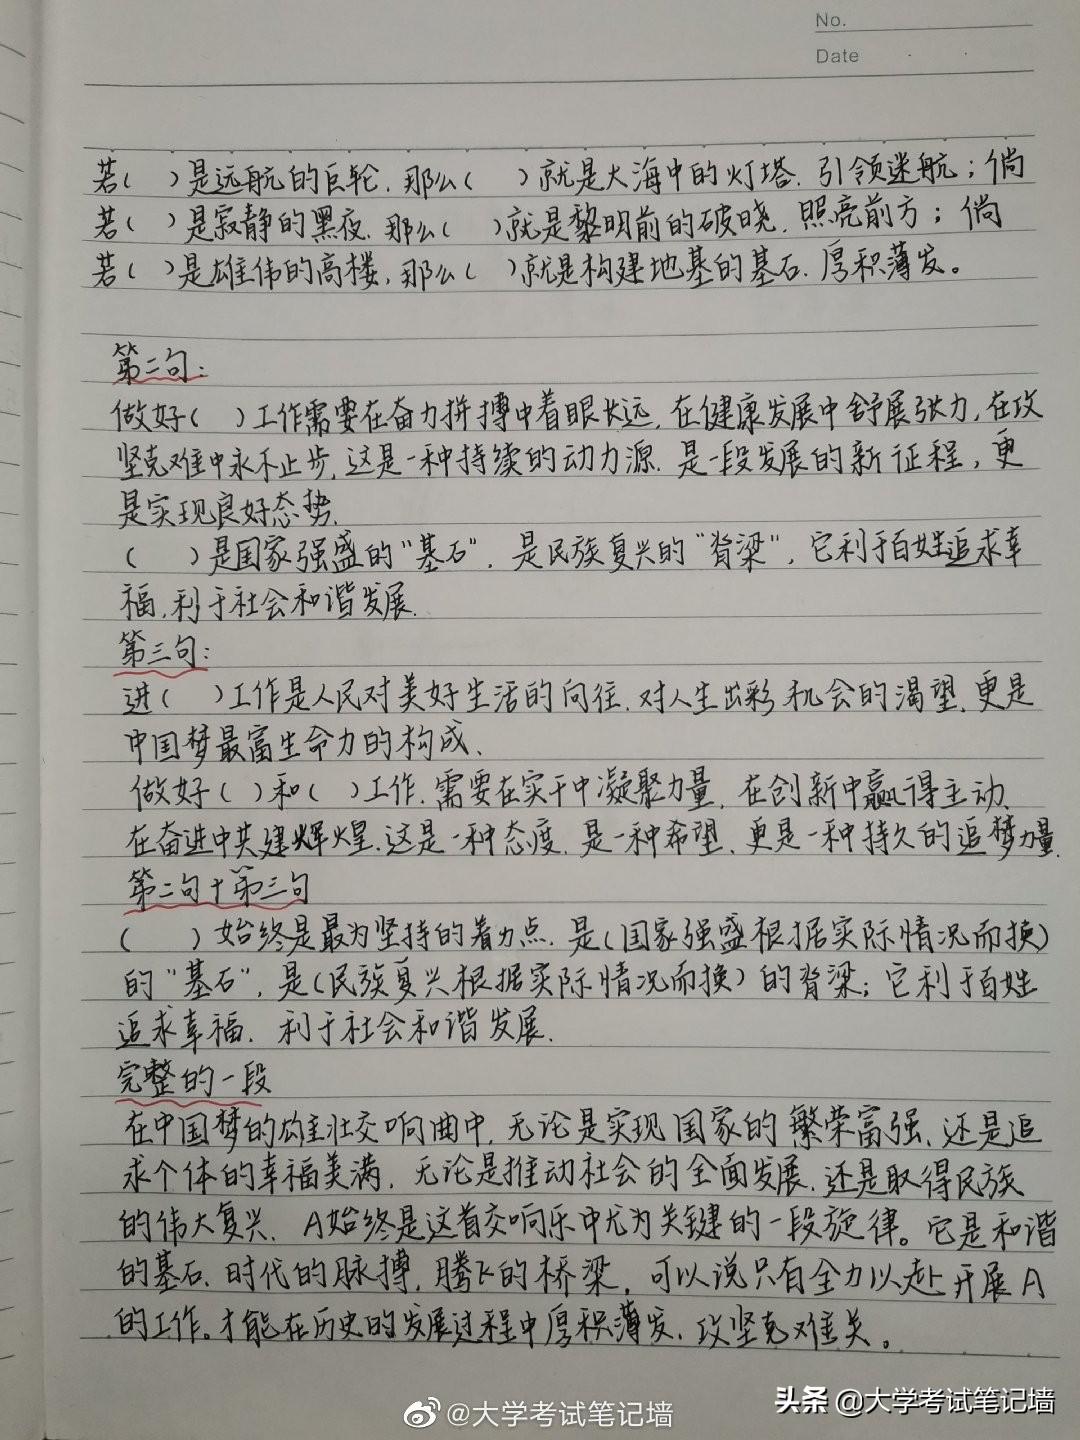 No.
Date
若( )是远航的巨轮,那么( )就是大海中的灯塔,引领迷航;倘
若( )是寂静的黑夜,那么( )就是黎明前的破晓,照亮前方;倘
若( )是雄伟的高楼,那么( )就是构建地基的基石,厚积薄发。
第二句:
做好( )工作需要在奋力拼搏中着眼长远,在健康发展中舒展张力,在攻
坚克难中永不止步,这是一种持续的动力源,是一段发展的新征程,更
是实现良好态势.
( )是国家强盛的"基石",是民族复兴的"脊梁",它利于百姓追求幸
福,利于社会和谐发展.
第三句:
进( )工作是人民对美好生活的向往,对人生出彩机会的渴望,更是
中国梦最富生命力的构成、
做好( )和( )工作,需要在实干中凝聚力量,在创新中赢得主动、
在奋进中共建辉煌,这是一种态度,是一种希望,更是一种持久的追梦力量.
第二句+第三句
( )始终是最为坚持的着力点,是(国家强盛根据实际情况而换)
的"基石",是(民族复兴根据实际情况而换)的脊梁;它利于百姓
追求幸福,利于社会和谐发展.
完整的一段
在中国梦的雄壮交响曲中,无论是实现国家的繁荣富强、还是追
求个体的幸福美满,无论是推动社会的全面发展,还是取得民族
的伟大复兴、A始终是这首交响乐中尤为关键的一段旋律。它是和谐
的基石,时代的脉搏,腾飞的桥梁,可以说只有全力以赴开展A
的工作。才能在历史的发展过程中厚积薄发,攻坚克难关。
@大学考试笔记墙
头条@大学考试笔记墙